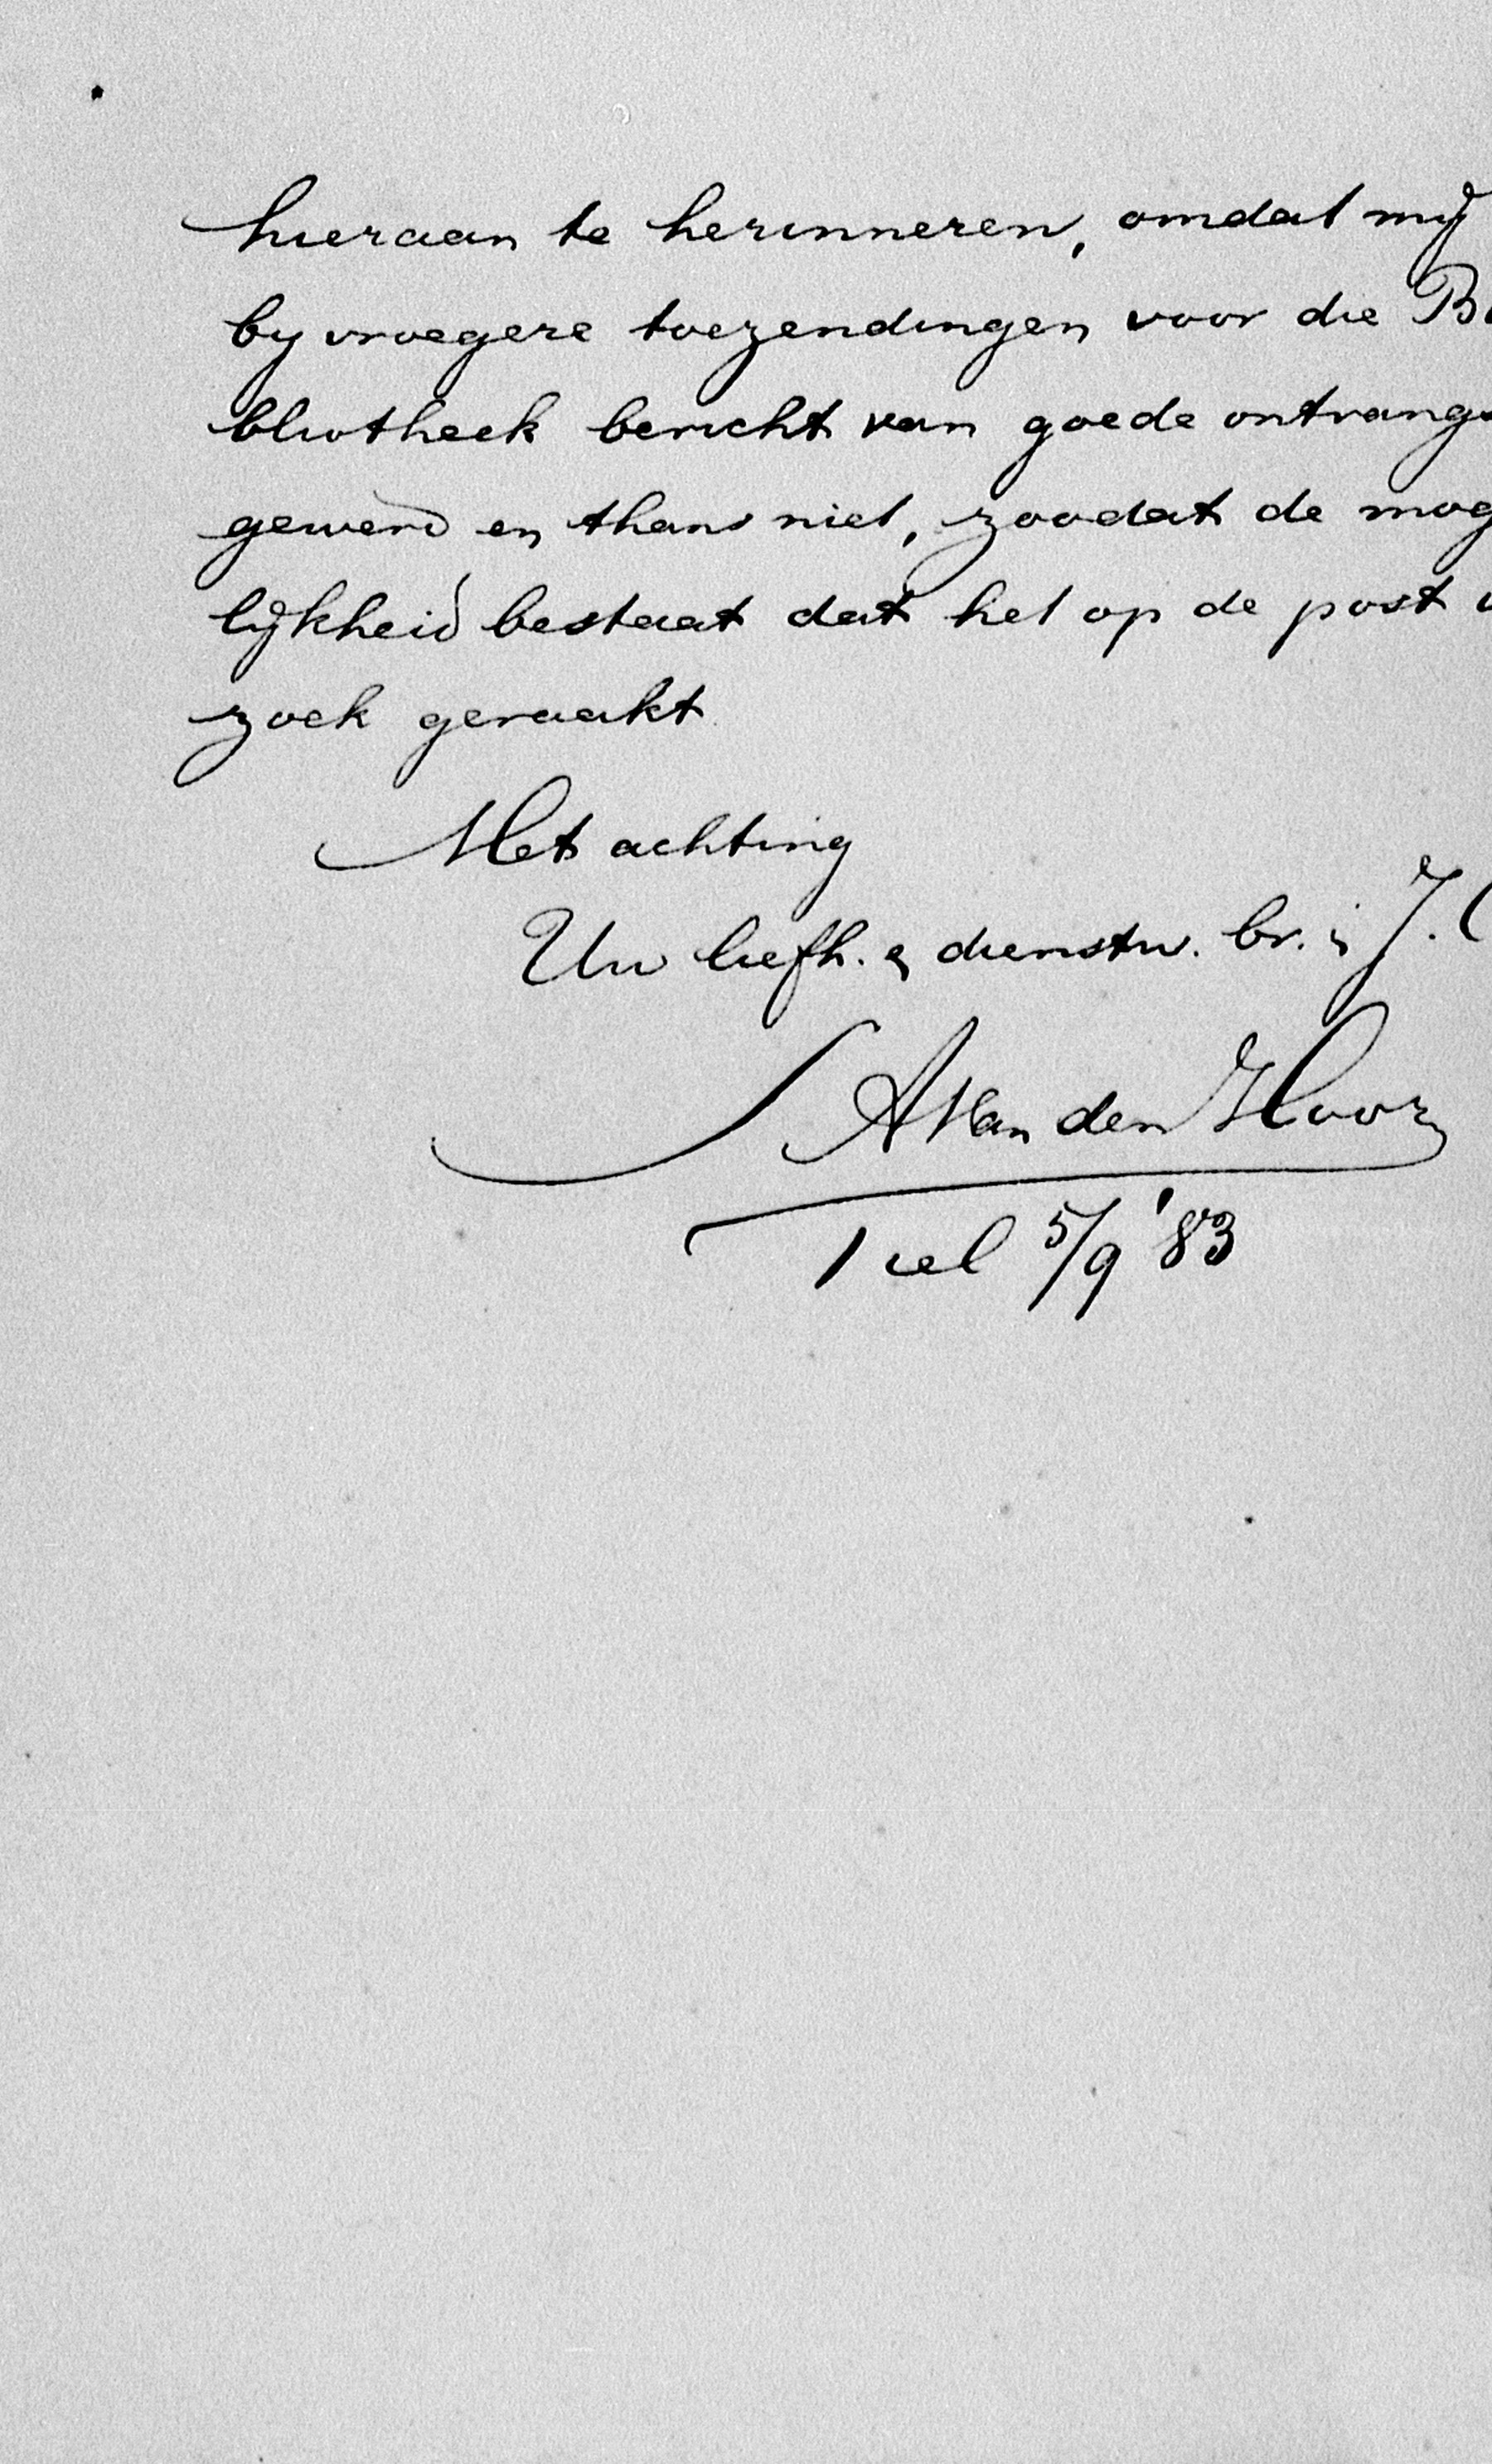 hieraan te herinneren, omdat mij
bij vroegere toezendingen voor die Bi
bliotheek bericht van goede ontvangs
gewerd en thans niet, zoodat de mog
lijkheid bestaat dat het op de post
zoek geraakt
Met achting
Uw liefh. & dienstw. br. i. J. C
J A Van den Hoorn
Tiel 5/9 '83